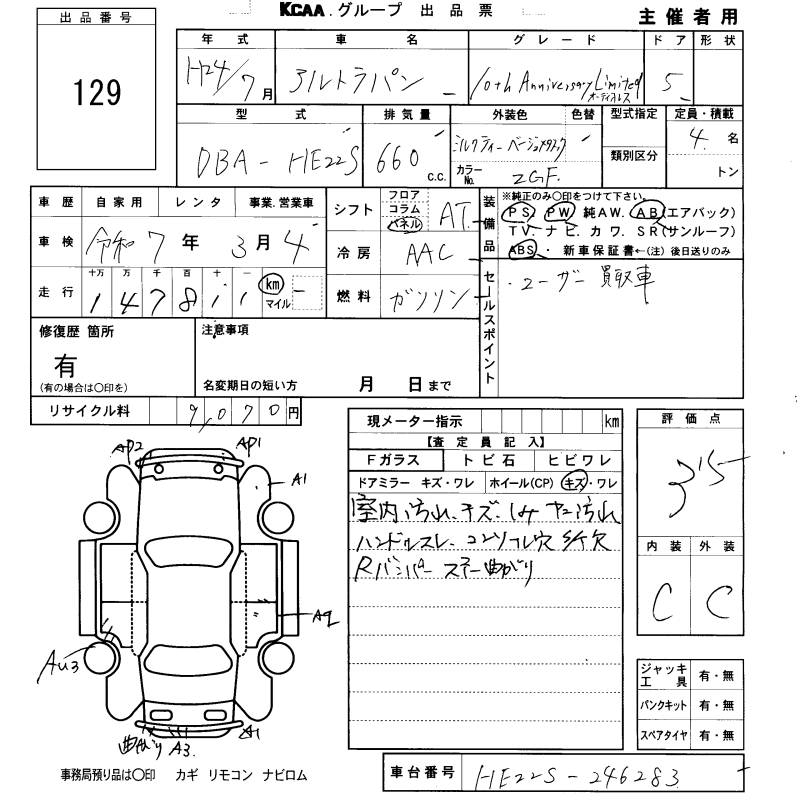 KCAA.グループ 出品票
主催者用
出品番号
129
年式 車名 グレード ドア 形状
H24/7月 アルトラパン 10th Anniversary Limited 5
オーディオレス
型式 排気量 外装色 色替 型式指定 定員・積載
DBA-HE22S 660 c.c. 4名
カラーNo. ZGF
類別区分
トン
車歴 自家用 レンタ 事業.営業車
車検 令和7年3月4
走行 十万 万 千 百 十 一
147811 km マイル
シフト フロア コラム パネル AT
冷房 AAC
燃料 ガソリン
装備品
※純正のみ○印をつけて下さい。
PS. PW. 純AW. AB(エアバック)
TV. ナビ. カワ. SR(サンルーフ)
ABS・ 新車保証書←(注)後日送りのみ
セールスポイント
・ユーザー買取車
修復歴 箇所
有
(有の場合は○印を)
注意事項
名変期日の短い方 月 日まで
リサイクル料 9,070円
現メーター指示 km
【査定員記入】
Fガラス トビ石 ヒビワレ
ドアミラー キズ・ワレ ホイール(CP) キズ・ワレ
室内汚れ、キズ、しみ ヤニ汚れ
ハンドルスレ、コンソール穴
Rバンパー ステー曲がり
評価点
3.5
内装 外装
C C
AP2 AP1
A1
A2
AU3
曲がり A3 A1
ジャッキ工具 有・無
パンクキット 有・無
スペアタイヤ 有・無
事務局預り品は○印 カギ リモコン ナビロム
車台番号 HE22S-246283